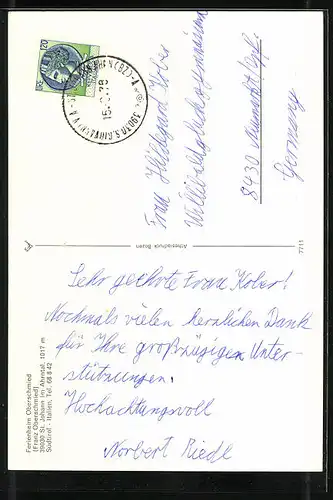 120
39030 S. GIOVANNI V.A. (BZ)-A
Frau Hildegard Kober
8430 Neumarkt/Opf.
Germany
Athesiadruck Bozen
7711
Sehr geehrte Frau Kober!
Nochmals vielen herzlichen Dank
für Ihre großzügigen Unter-
stützungen.
Hochachtungsvoll
Norbert Riedl
Ferienheim Oberschmied
(Franz Oberschmied)
39030 St. Johann im Ahrntal, 1017 m
Südtirol - Italien, Tel. 68 8 42